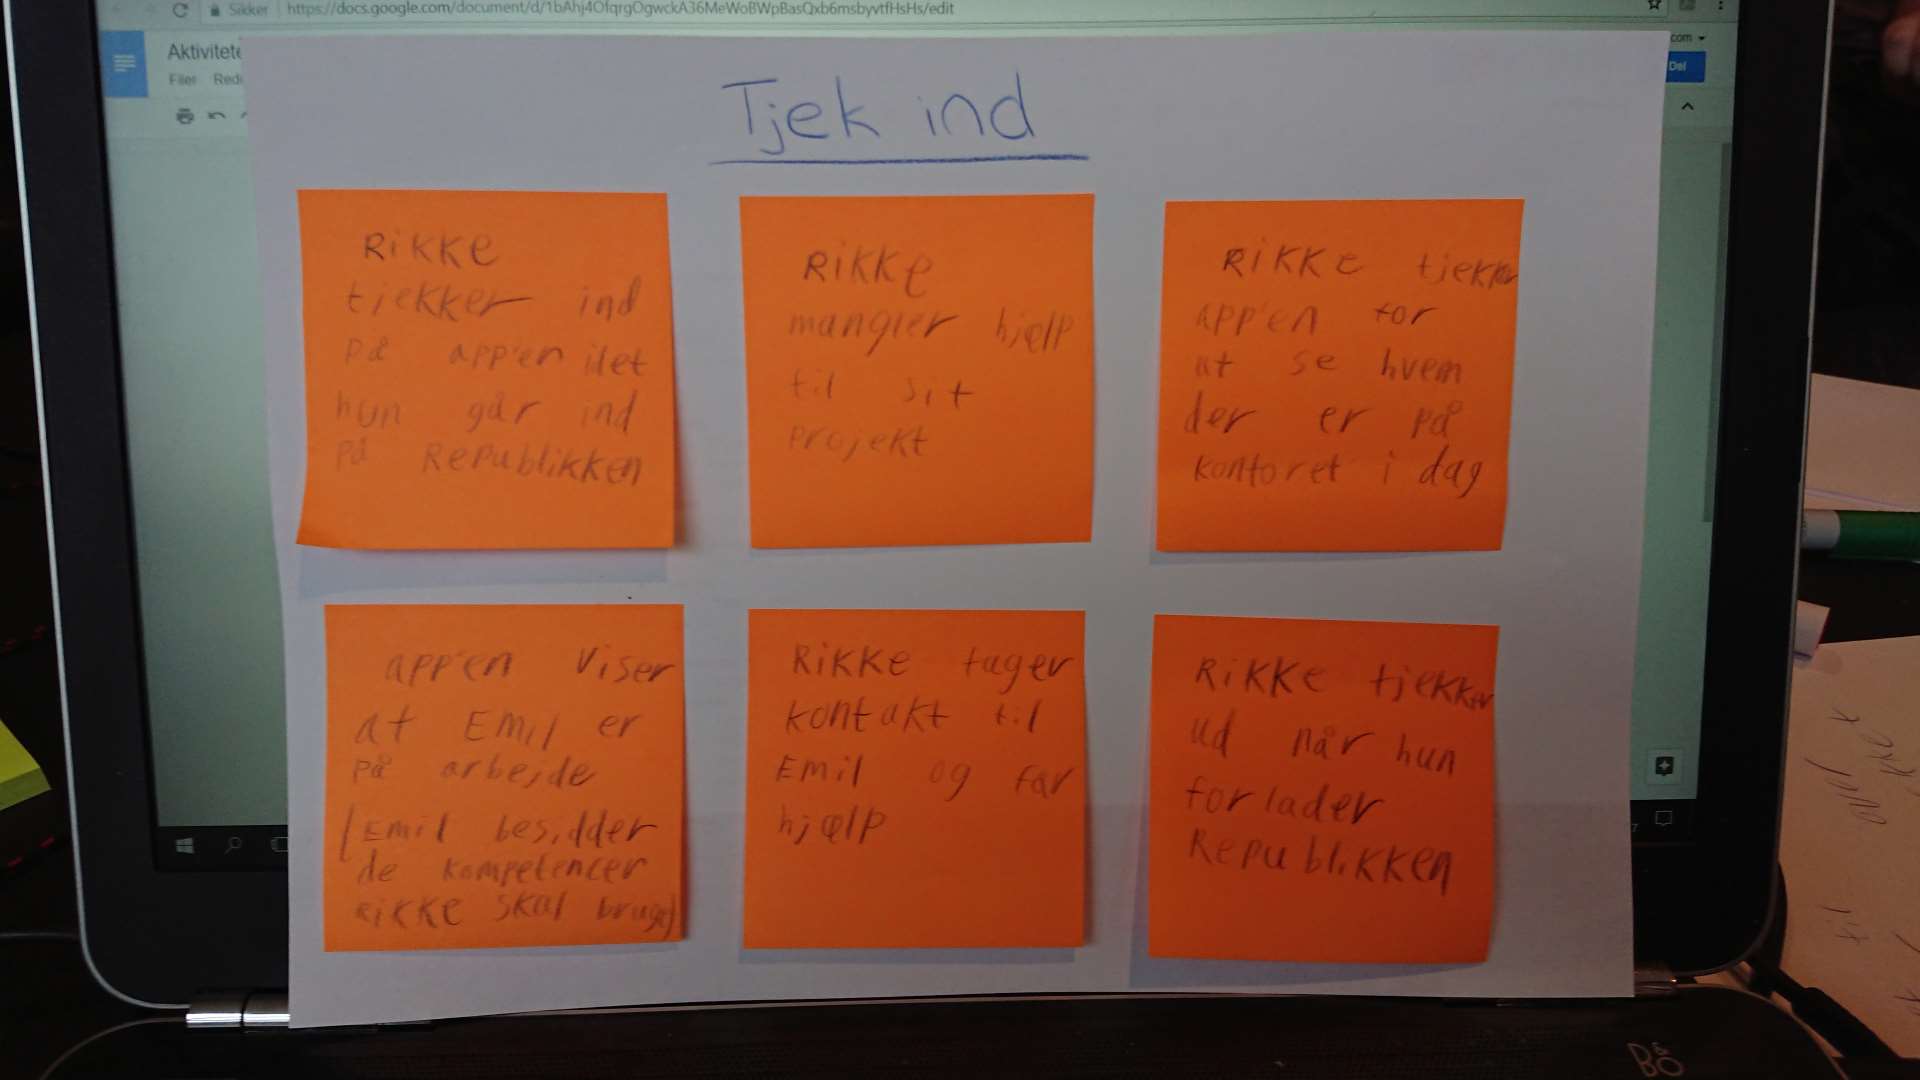 Sikker
https://docs.google.com/document/d/1bAhj4OfqrgOgwckA36MeWoBWpBasQxb6msbyvtfHsHs/edit
Aktivitete
Filer Redi
com
Del
Tjek ind
Rikke
tjekker ind
på app'en idet
hun går ind
på Republikken
Rikke
mangler hjælp
til sit
projekt
Rikke tjekker
app'en for
at se hvem
der er på
kontoret i dag
app'en viser
at Emil er
på arbejde
(Emil besidder
de kompetencer
Rikke skal bruge)
Rikke tager
kontakt til
Emil og får
hjælp
Rikke tjekker
ud når hun
forlader
Republikken
B&O